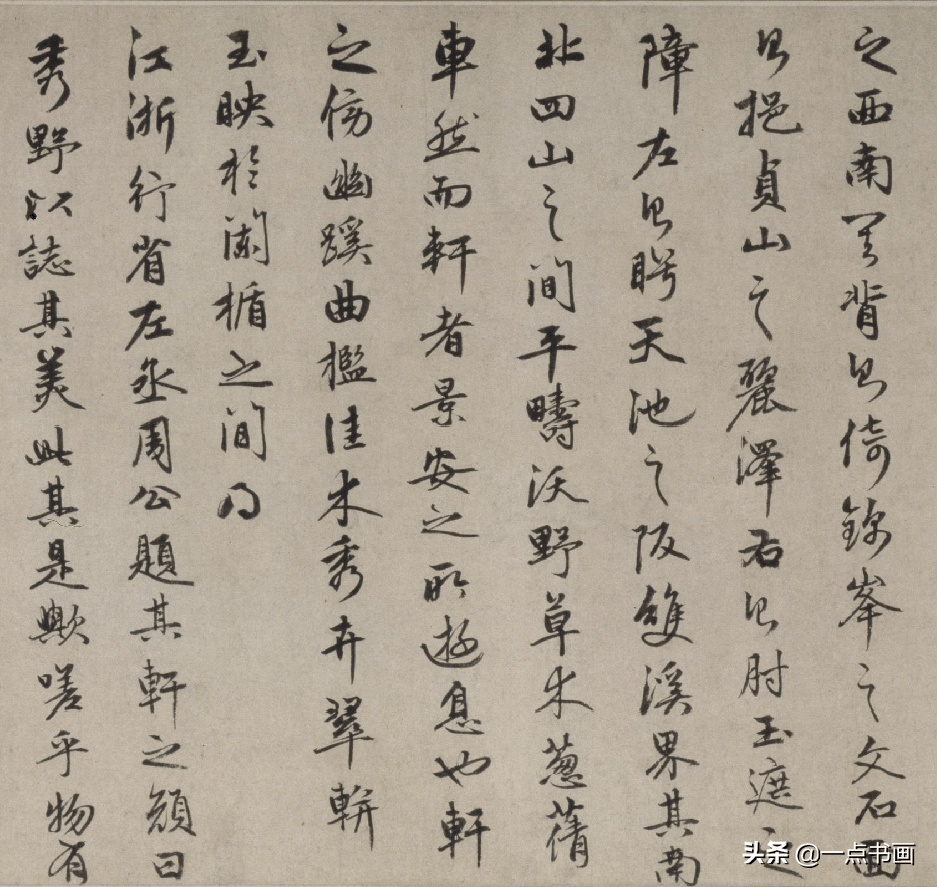 之西南其背則倚錦峯之文石面
則挹貞山之麗澤右則肘玉遮之
障左則盻天池之阪雙溪界其南
北四山之間平疇沃野草木葱蒨
車然而軒者景安之所遊息也軒
之傍幽蹊曲檻佳木秀卉翠軿
玉映於闌楯之間乃
江浙行省左丞周公題其軒之額曰
秀野以誌其美此其是歟嗟乎物有
头条 @一点书画